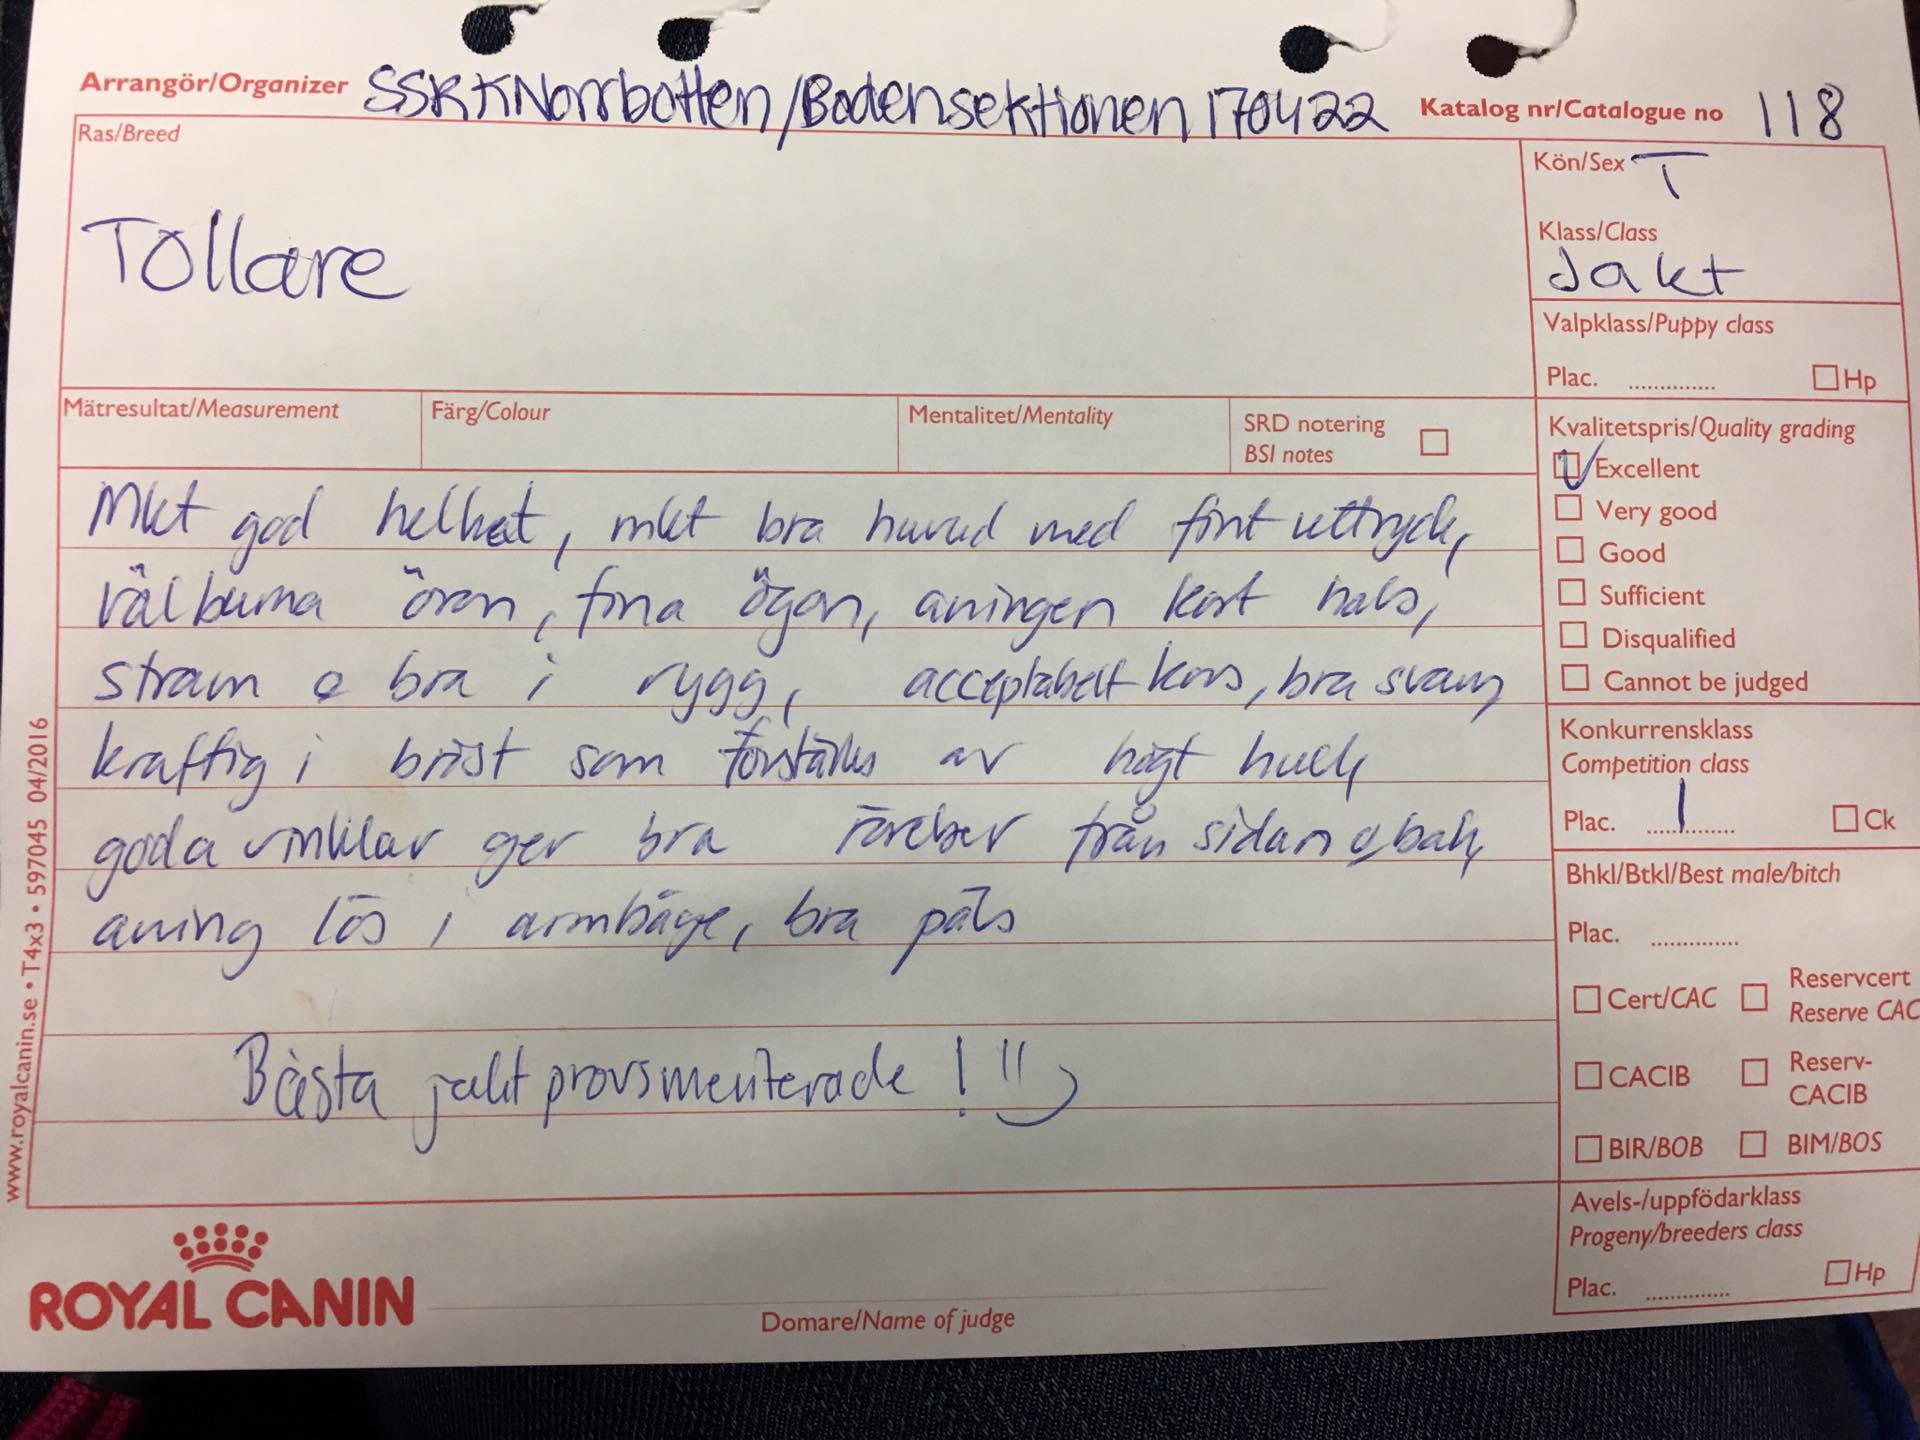 Arrangör/Organizer SSRK Norrbotten/Bodensektionen 170422 Katalog nr/Catalogue no 118
Ras/Breed
Tollare
Kön/Sex T
Klass/Class
Jakt
Valpklass/Puppy class
Plac. .............. Hp
Mätresultat/Measurement Färg/Colour Mentalitet/Mentality SRD notering
BSI notes
Mkt god helhet, mkt bra huvud med fint uttryck,
välburna öron, fina ögon, aningen kort hals,
stram o bra i rygg, acceptabelt kors, bra svans
kraftig i bröst som förstärks av högt
goda vinklar ger bra rörelser från sidan o bak,
aning lös i armbåge, bra päls
Bästa jaktprovsmeriterade !
Kvalitetspris/Quality grading
Excellent
Very good
Good
Sufficient
Disqualified
Cannot be judged
Konkurrensklass
Competition class
Plac. 1 Ck
Bhkl/Btkl/Best male/bitch
Plac. ..............
Cert/CAC Reservcert
Reserve CAC
CACIB Reserv-
CACIB
BIR/BOB BIM/BOS
Avels-/uppfödarklass
Progeny/breeders class
Plac. .............. Hp
www.royalcanin.se • T4x3 • 597045 04/2016
ROYAL CANIN
Domare/Name of judge